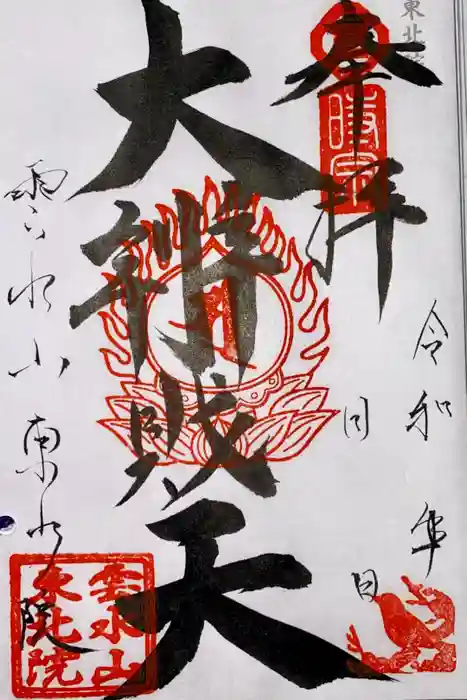 東北院
奉拝
時宗
令和 年 月 日
大辨財天
雲水山 東北院
雲水山
東北院